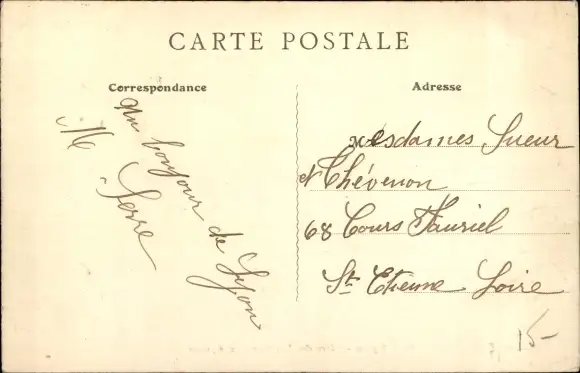 CARTE POSTALE
Correspondance
Adresse
Un bonjour de Lyon
M Serre
Mesdames Sueur
et Thévenon
68 Cours Fauriel
St. Etienne Loire
15-